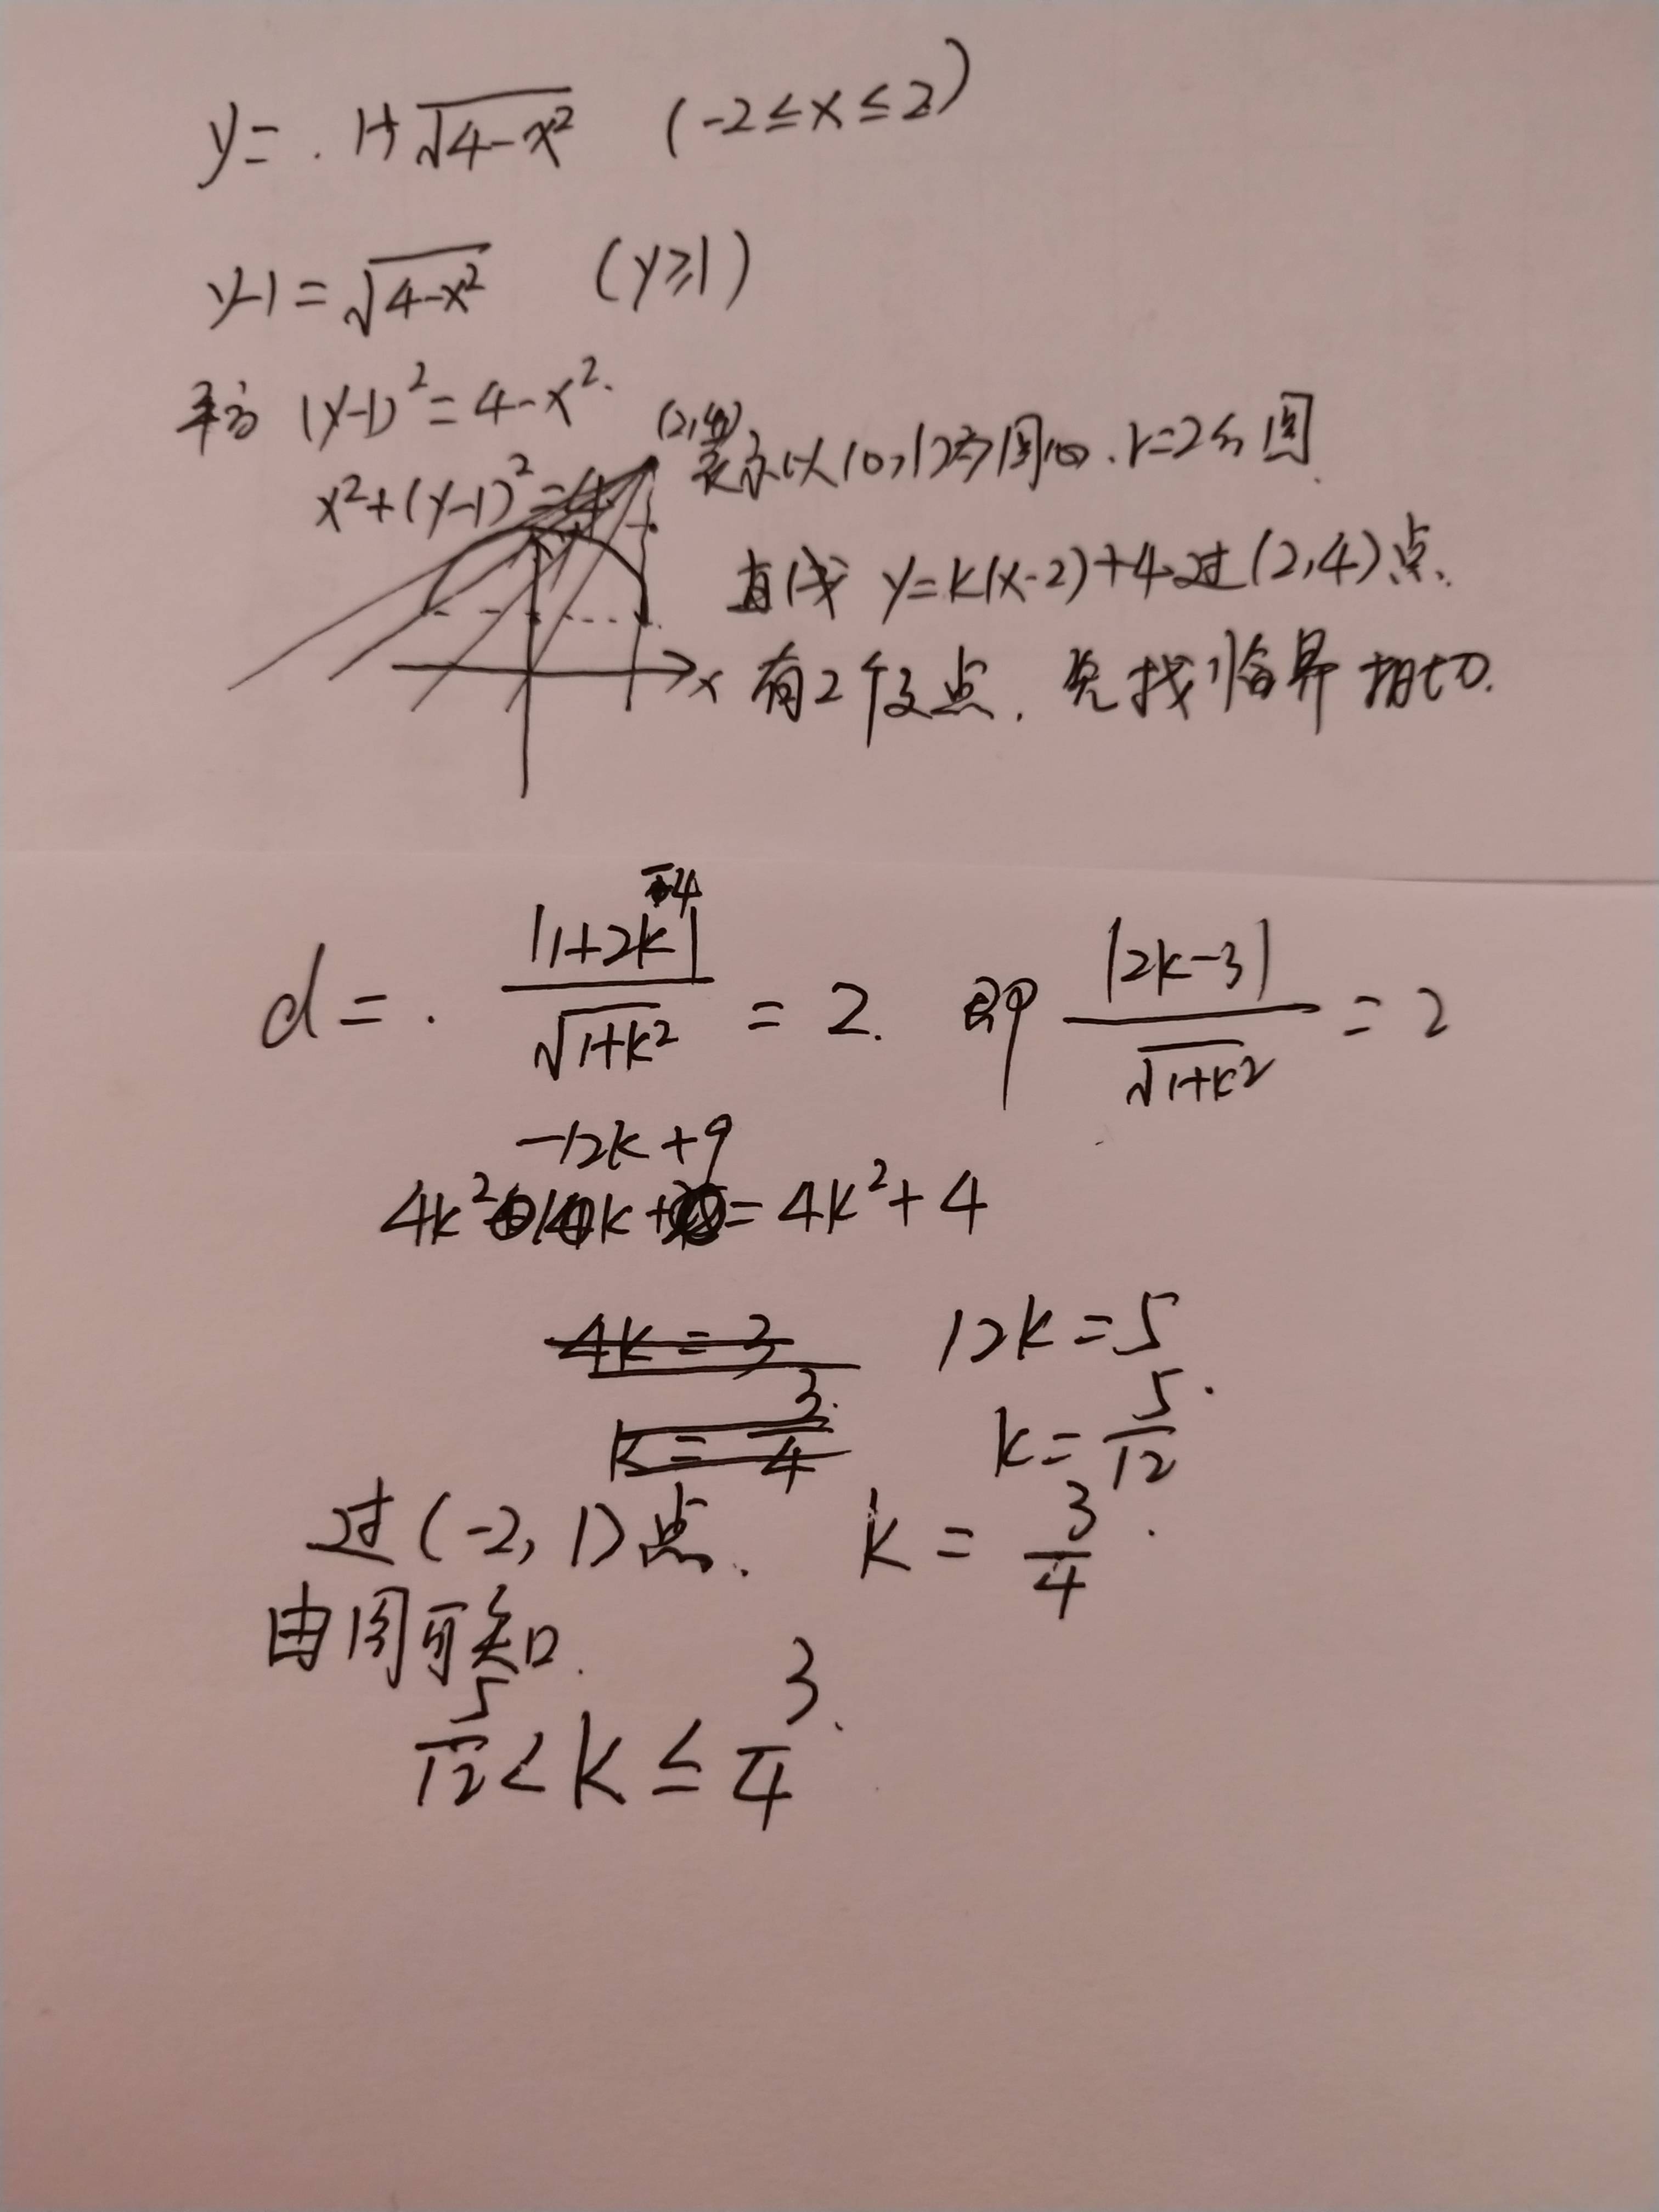 y = 1+√(4-x²) (-2≤x≤2)
y-1=√(4-x²) (y≥1)
平方 (y-1)²=4-x²
x²+(y-1)²=4 (2,4) 表示以(0,1)为圆心.r=2的圆
直线 y=k(x-2)+4过(2,4)点.
x 有2个交点.先找临界相切.
d = |1+2k-4|/√(1+k²) = 2. 即 |2k-3|/√(1+k²) = 2
4k²-12k+9=4k²+4
4k=3 12k=5
k=3/4 k=5/12
过(-2,1)点. k=3/4.
由图可知.
5/12<k≤3/4.